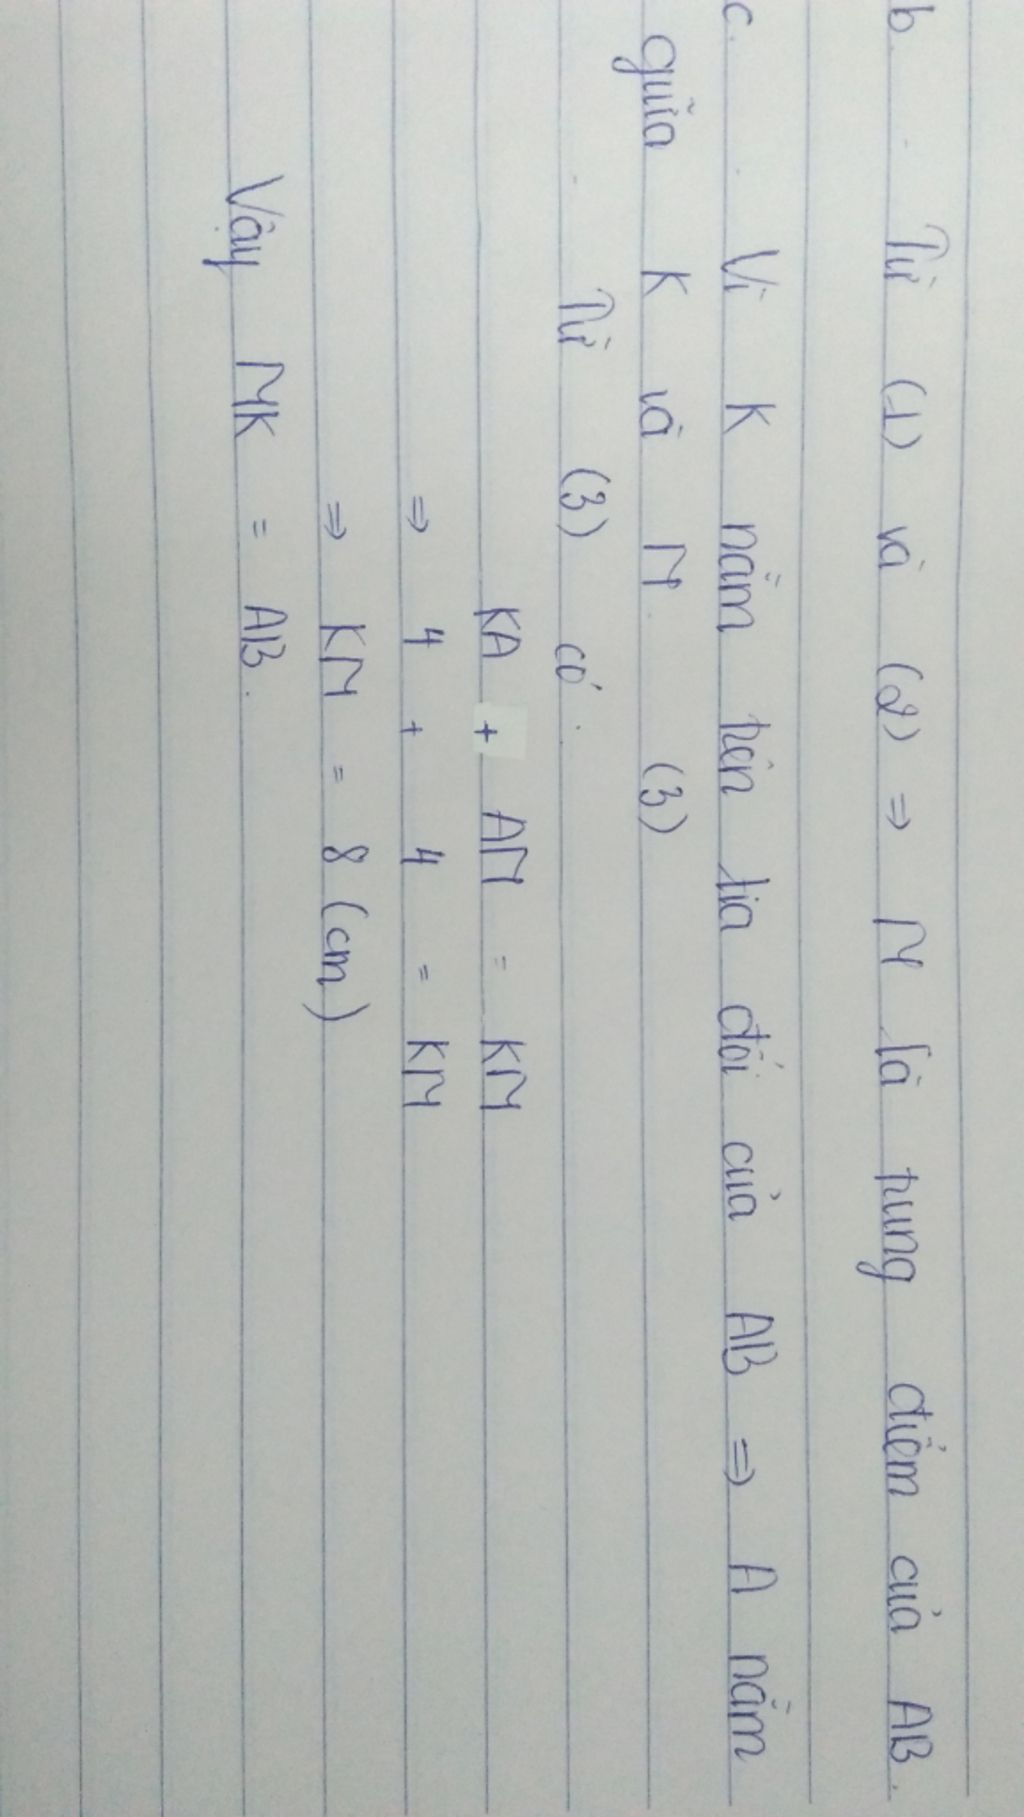 b. Từ (1) và (2) => M là trung điểm của AB.
c. Vì K nằm trên tia đối của AB => A nằm
giữa K và M (3)
Từ (3) có:
KA + AM = KM
=> 4 + 4 = KM
=> KM = 8 (cm)
Vậy MK = AB.